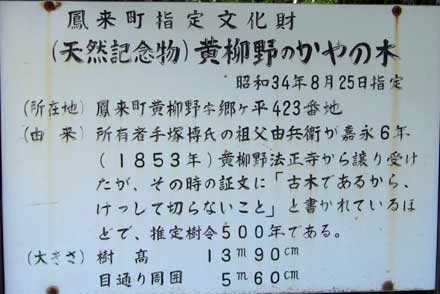 鳳来町指定文化財
(天然記念物)黄柳野のかやの木
昭和34年8月25日指定
(所在地) 鳳来町黄柳野字郷ヶ平423番地
(由 来) 所有者手塚博氏の祖父由兵衛が嘉永6年
(1853年)黄柳野法正寺から譲り受け
たが、その時の証文に「古木であるから、
けっして切らないこと」と書かれているほ
どで、推定樹令500年である。
(大きさ) 樹 高 13m90cm
目通り周囲 5m60cm